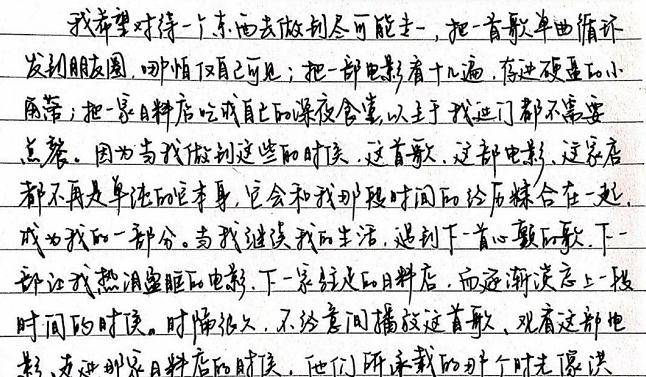 我希望对待一个东西去做到尽可能专一，把一首歌单曲循环
发到朋友圈，哪怕仅自己可见；把一部电影看十几遍，存进硬盘的小
角落；把一家日料店吃成自己的深夜食堂，以至于我进门都不需要
点餐。因为当我做到这些的时候，这首歌、这部电影、这家店
都不再是单纯的它本身，它会和我那段时间的经历糅合在一起，
成为我的一部分。当我继续我的生活，遇到下一首心颤的歌、下一
部让我热泪盈眶的电影、下一家驻足的日料店，而逐渐淡忘上一段
时间的时候。时隔很久，不经意间播放这首歌、观看这部电
影、走进那家日料店的时候，他们所承载的那个时光像洪